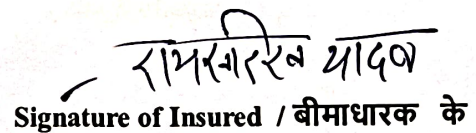 रामसागर यादव
Signature of Insured / बीमाधारक के